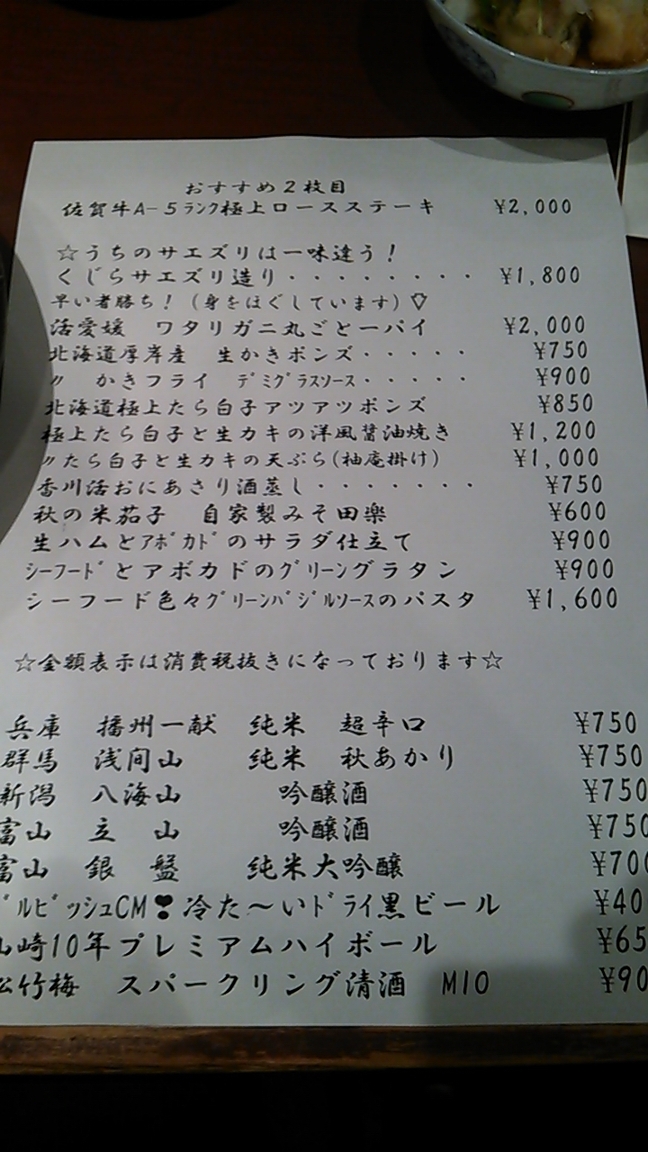 おすすめ2枚目
佐賀牛A-5ﾗﾝｸ極上ロースステーキ ¥2,000
☆うちのサエズリは一味違う!
くじらサエズリ造り・・・・・・・・ ¥1,800
早い者勝ち!(身をほぐしています)♡
活愛媛 ワタリガニ丸ごと一パイ ¥2,000
北海道厚岸産 生かきポンズ・・・・・ ¥750
〃 かきフライ ﾃﾞﾐｸﾞﾗｽソース・・・・・ ¥900
北海道極上たら白子アツアツポンズ ¥850
極上たら白子と生カキの洋風醤油焼き ¥1,200
〃たら白子と生カキの天ぷら(柚庵掛け) ¥1,000
香川活おにあさり酒蒸し・・・・・・・ ¥750
秋の米茄子 自家製みそ田楽 ¥600
生ハムとｱﾎﾞｶﾄﾞのサラダ仕立て ¥900
ｼｰﾌｰﾄﾞとアボカドのｸﾞﾘｰﾝグラタン ¥900
シーフード色々ｸﾞﾘｰﾝﾊﾞｼﾞﾙソースのパスタ ¥1,600
☆金額表示は消費税抜きになっております☆
兵庫 播州一献 純米 超辛口 ¥750
群馬 浅間山 純米 秋あかり ¥750
新潟 八海山 吟醸酒 ¥750
富山 立 山 吟醸酒 ¥750
富山 銀 盤 純米大吟醸 ¥700
ﾞﾙﾋﾞｯｼｭCM❣冷た〜いﾄﾞﾗｲ黒ビール ¥40
山崎10年プレミアムハイボール ¥65
松竹梅 スパークリング清酒 M10 ¥90